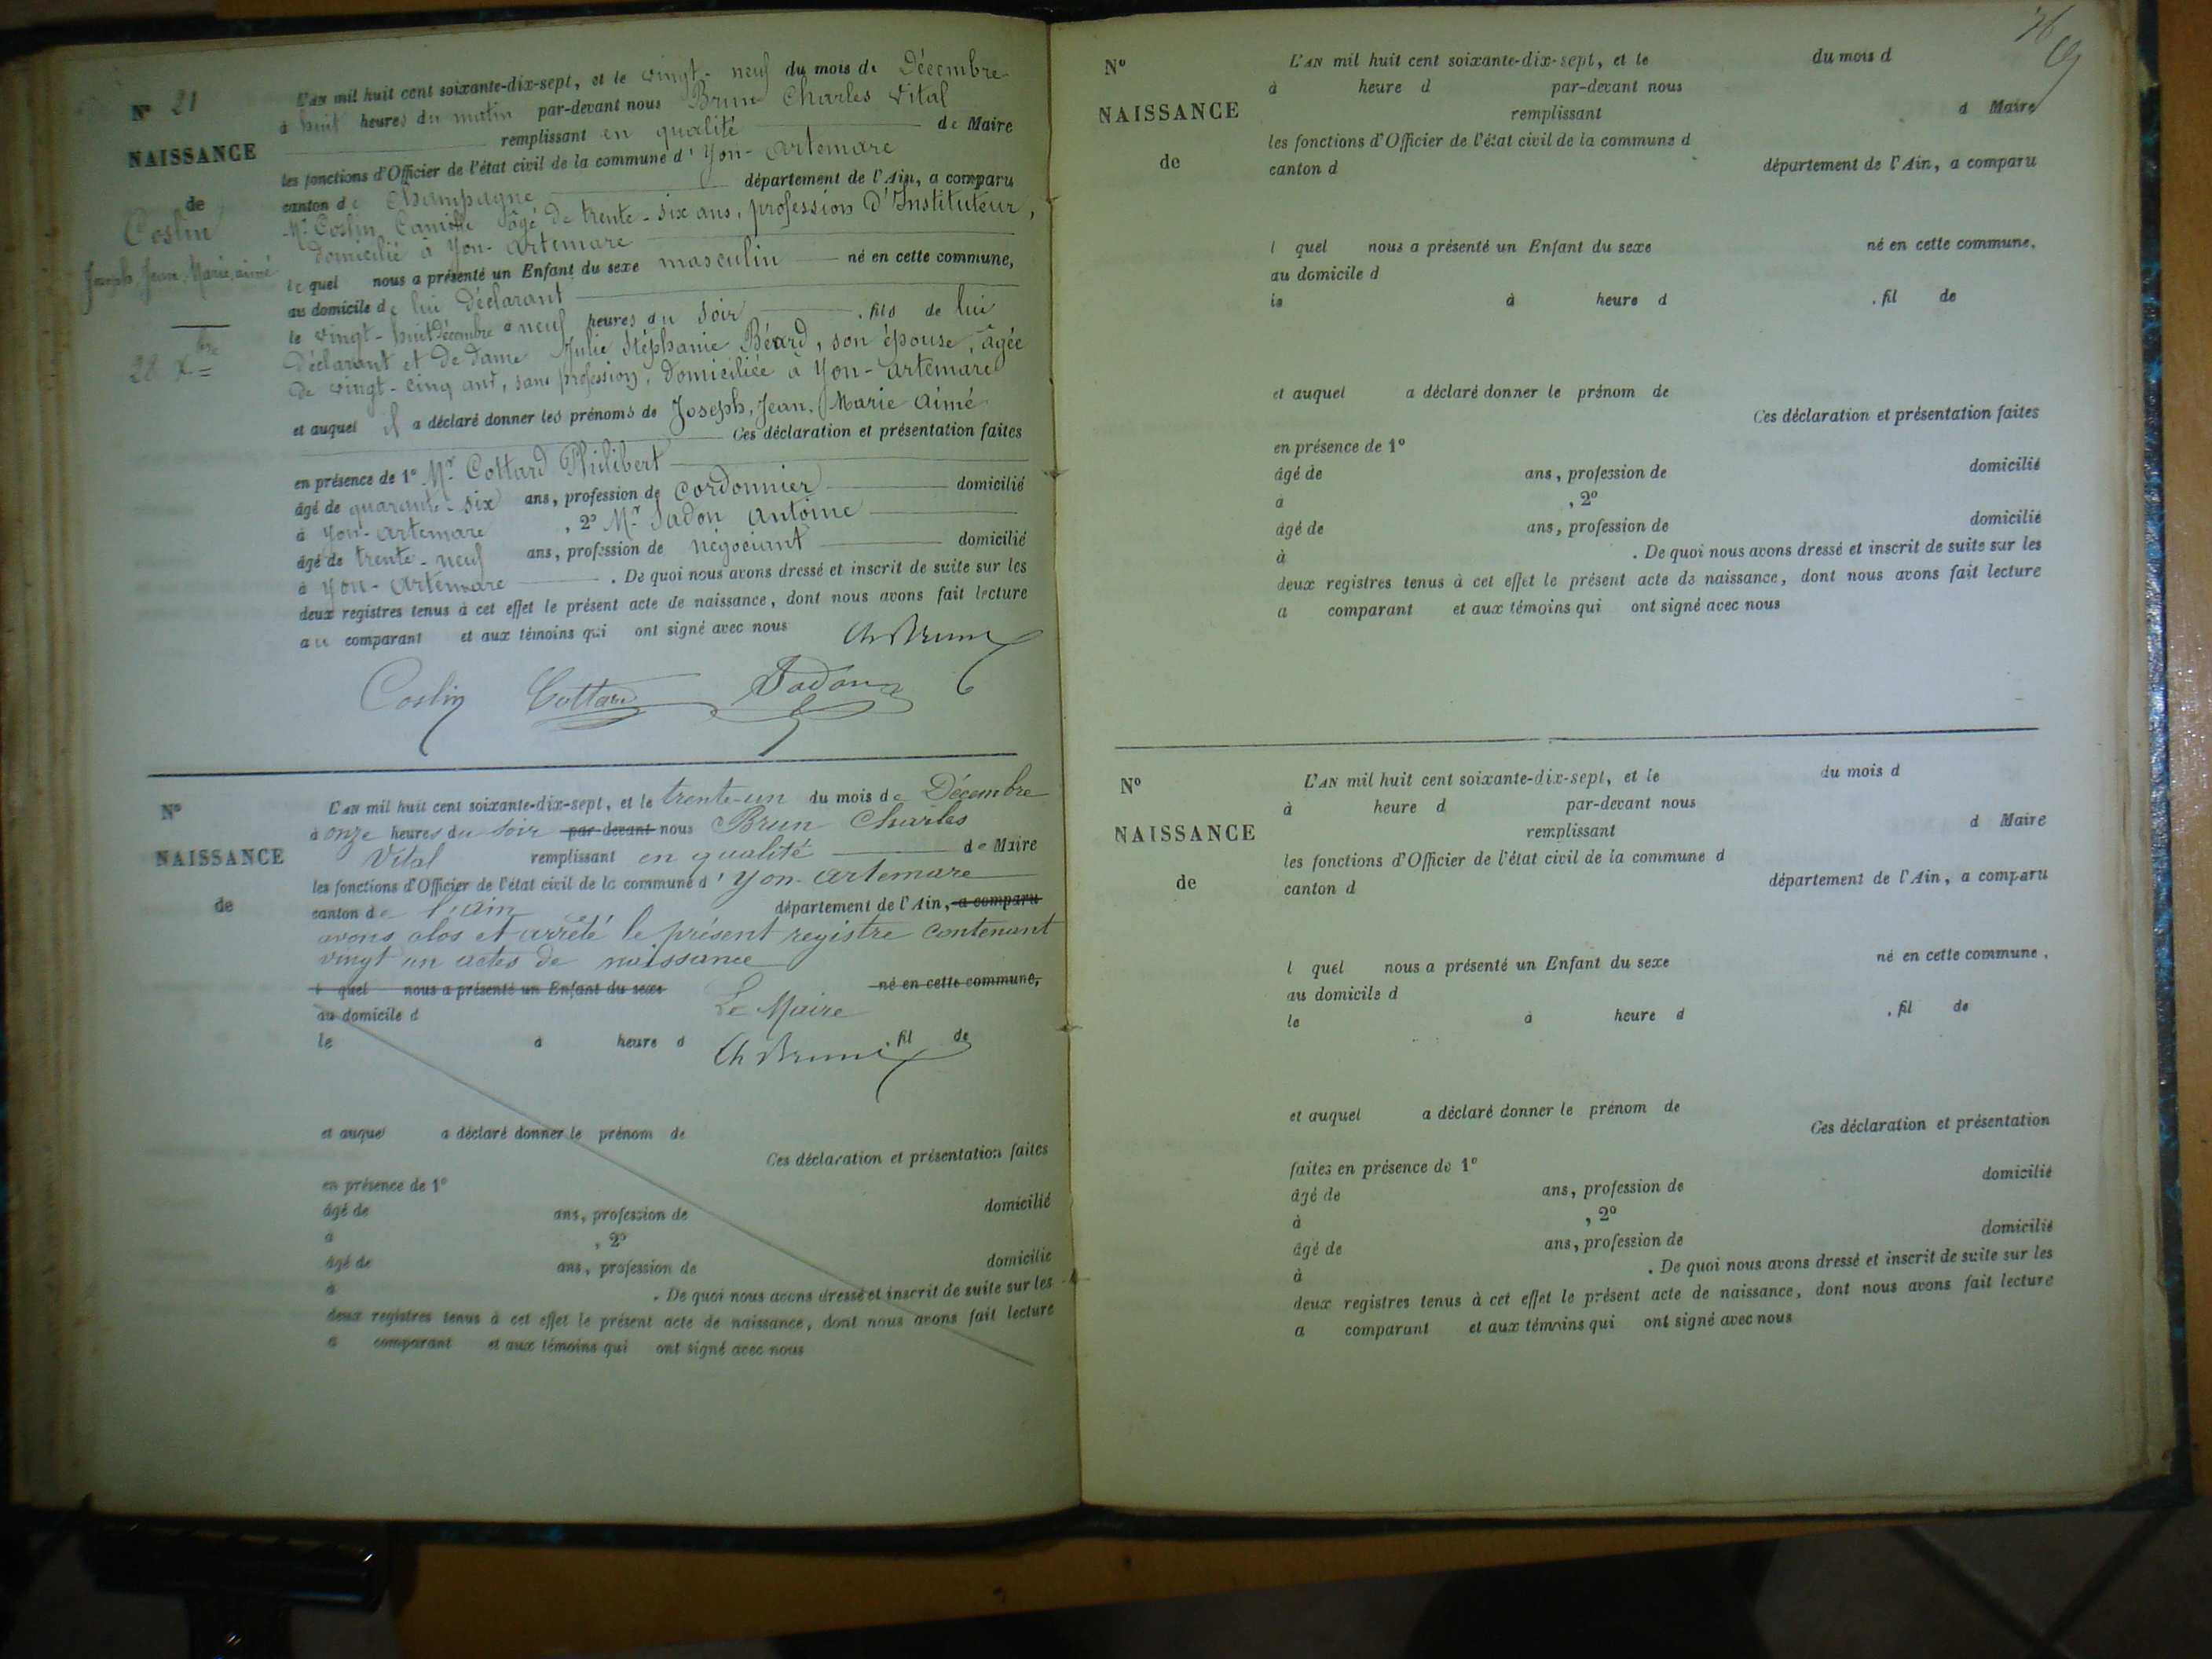 N° 21
NAISSANCE
de
Coslin
Joseph, Jean, Marie, aimé
28 Xbre
L'AN mil huit cent soixante-dix-sept, et le vingt-neuf du mois de Décembre
à huit heures du matin par-devant nous Brun Charles Vital
remplissant en qualité de Maire
les fonctions d'Officier de l'état civil de la commune d'Yon-artemare
canton de Champagne département de l'Ain, a comparu
Mr Coslin Camille âgé de trente-six ans, profession d'Instituteur,
domicilié à Yon-artemare
lequel nous a présenté un Enfant du sexe masculin né en cette commune,
au domicile de lui déclarant
le vingt-huit Décembre à neuf heures du soir, fils de lui
déclarant et de dame Julie Stéphanie Béard, son épouse, âgée
de vingt-cinq ans, sans profession, domiciliée à Yon-artemare
et auquel il a déclaré donner les prénoms de Joseph, Jean, Marie aimé
Ces déclaration et présentation faites
en présence de 1° Mr Cottard Philibert
âgé de quarante-six ans, profession de cordonnier domicilié
à Yon-artemare, 2° Mr Jadon antoine
âgé de trente-neuf ans, profession de négociant domicilié
à Yon-artemare. De quoi nous avons dressé et inscrit de suite sur les
deux registres tenus à cet effet le présent acte de naissance, dont nous avons fait lecture
au comparant et aux témoins qui ont signé avec nous
Ch Brun
Coslin Cottard Jadon
N°
NAISSANCE
de
L'AN mil huit cent soixante-dix-sept, et le trente-un du mois de Décembre
à onze heures du soir par-devant nous Brun Charles
Vital remplissant en qualité de Maire
les fonctions d'Officier de l'état civil de la commune d'Yon-artemare
canton de l'ain département de l'Ain, a comparu
avons clos et arrêté le présent registre contenant
vingt un actes de naissance
l quel nous a présenté un Enfant du sexe né en cette commune,
au domicile d Le Maire
le à heure d , fil de
Ch Brun
et auquel a déclaré donner le prénom de
Ces déclaration et présentation faites
en présence de 1°
âgé de ans, profession de domicilié
à , 2°
âgé de ans, profession de domicilié
à . De quoi nous avons dressé et inscrit de suite sur les
deux registres tenus à cet effet le présent acte de naissance, dont nous avons fait lecture
a comparant et aux témoins qui ont signé avec nous
N°
NAISSANCE
de
L'AN mil huit cent soixante-dix-sept, et le du mois d
à heure d par-devant nous
remplissant d Maire
les fonctions d'Officier de l'état civil de la commune d
canton d département de l'Ain, a comparu
l quel nous a présenté un Enfant du sexe né en cette commune,
au domicile d
le à heure d , fil de
et auquel a déclaré donner le prénom de
Ces déclaration et présentation faites
en présence de 1°
âgé de ans, profession de domicilié
à , 2°
âgé de ans, profession de domicilié
à . De quoi nous avons dressé et inscrit de suite sur les
deux registres tenus à cet effet le présent acte de naissance, dont nous avons fait lecture
a comparant et aux témoins qui ont signé avec nous
N°
NAISSANCE
de
L'AN mil huit cent soixante-dix-sept, et le du mois d
à heure d par-devant nous
remplissant d Maire
les fonctions d'Officier de l'état civil de la commune d
canton d département de l'Ain, a comparu
l quel nous a présenté un Enfant du sexe né en cette commune,
au domicile d
le à heure d , fil de
et auquel a déclaré donner le prénom de
Ces déclaration et présentation
faites en présence de 1°
âgé de ans, profession de domicilié
à , 2°
âgé de ans, profession de domicilié
à . De quoi nous avons dressé et inscrit de suite sur les
deux registres tenus à cet effet le présent acte de naissance, dont nous avons fait lecture
a comparant et aux témoins qui ont signé avec nous